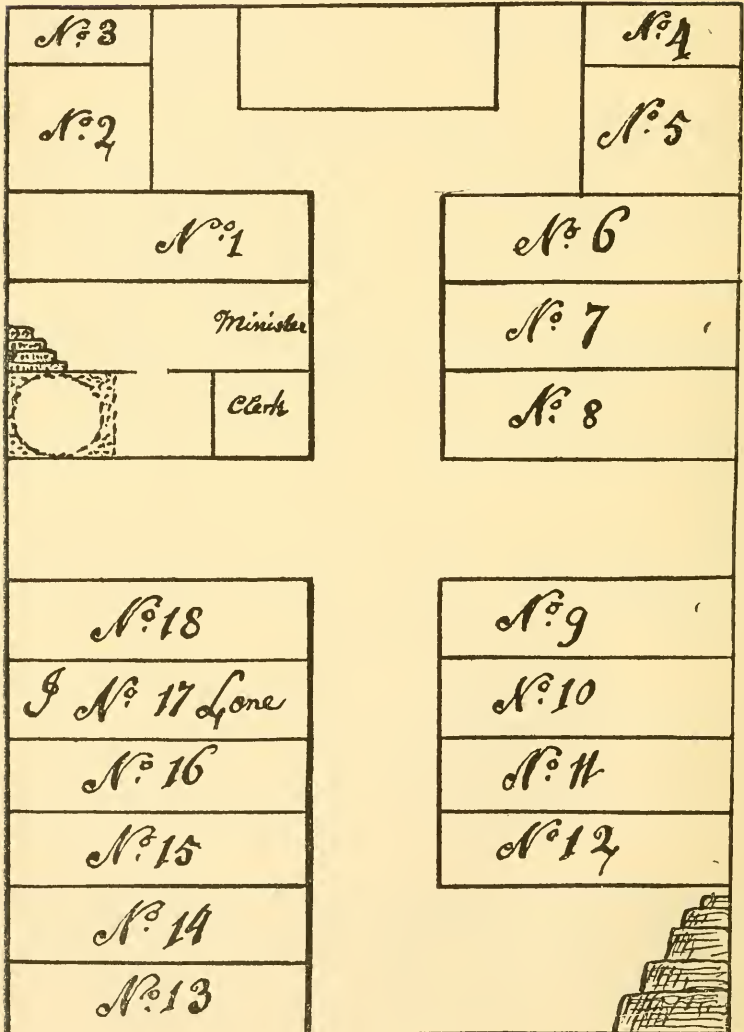 No. 3
No. 4
No. 2
No. 5
No. 1
No. 6
Minister
No. 7
Clerk
No. 8
No. 18
No. 9
J No. 17 Lone
No. 10
No. 16
No. 11
No. 15
No. 12
No. 14
No. 13